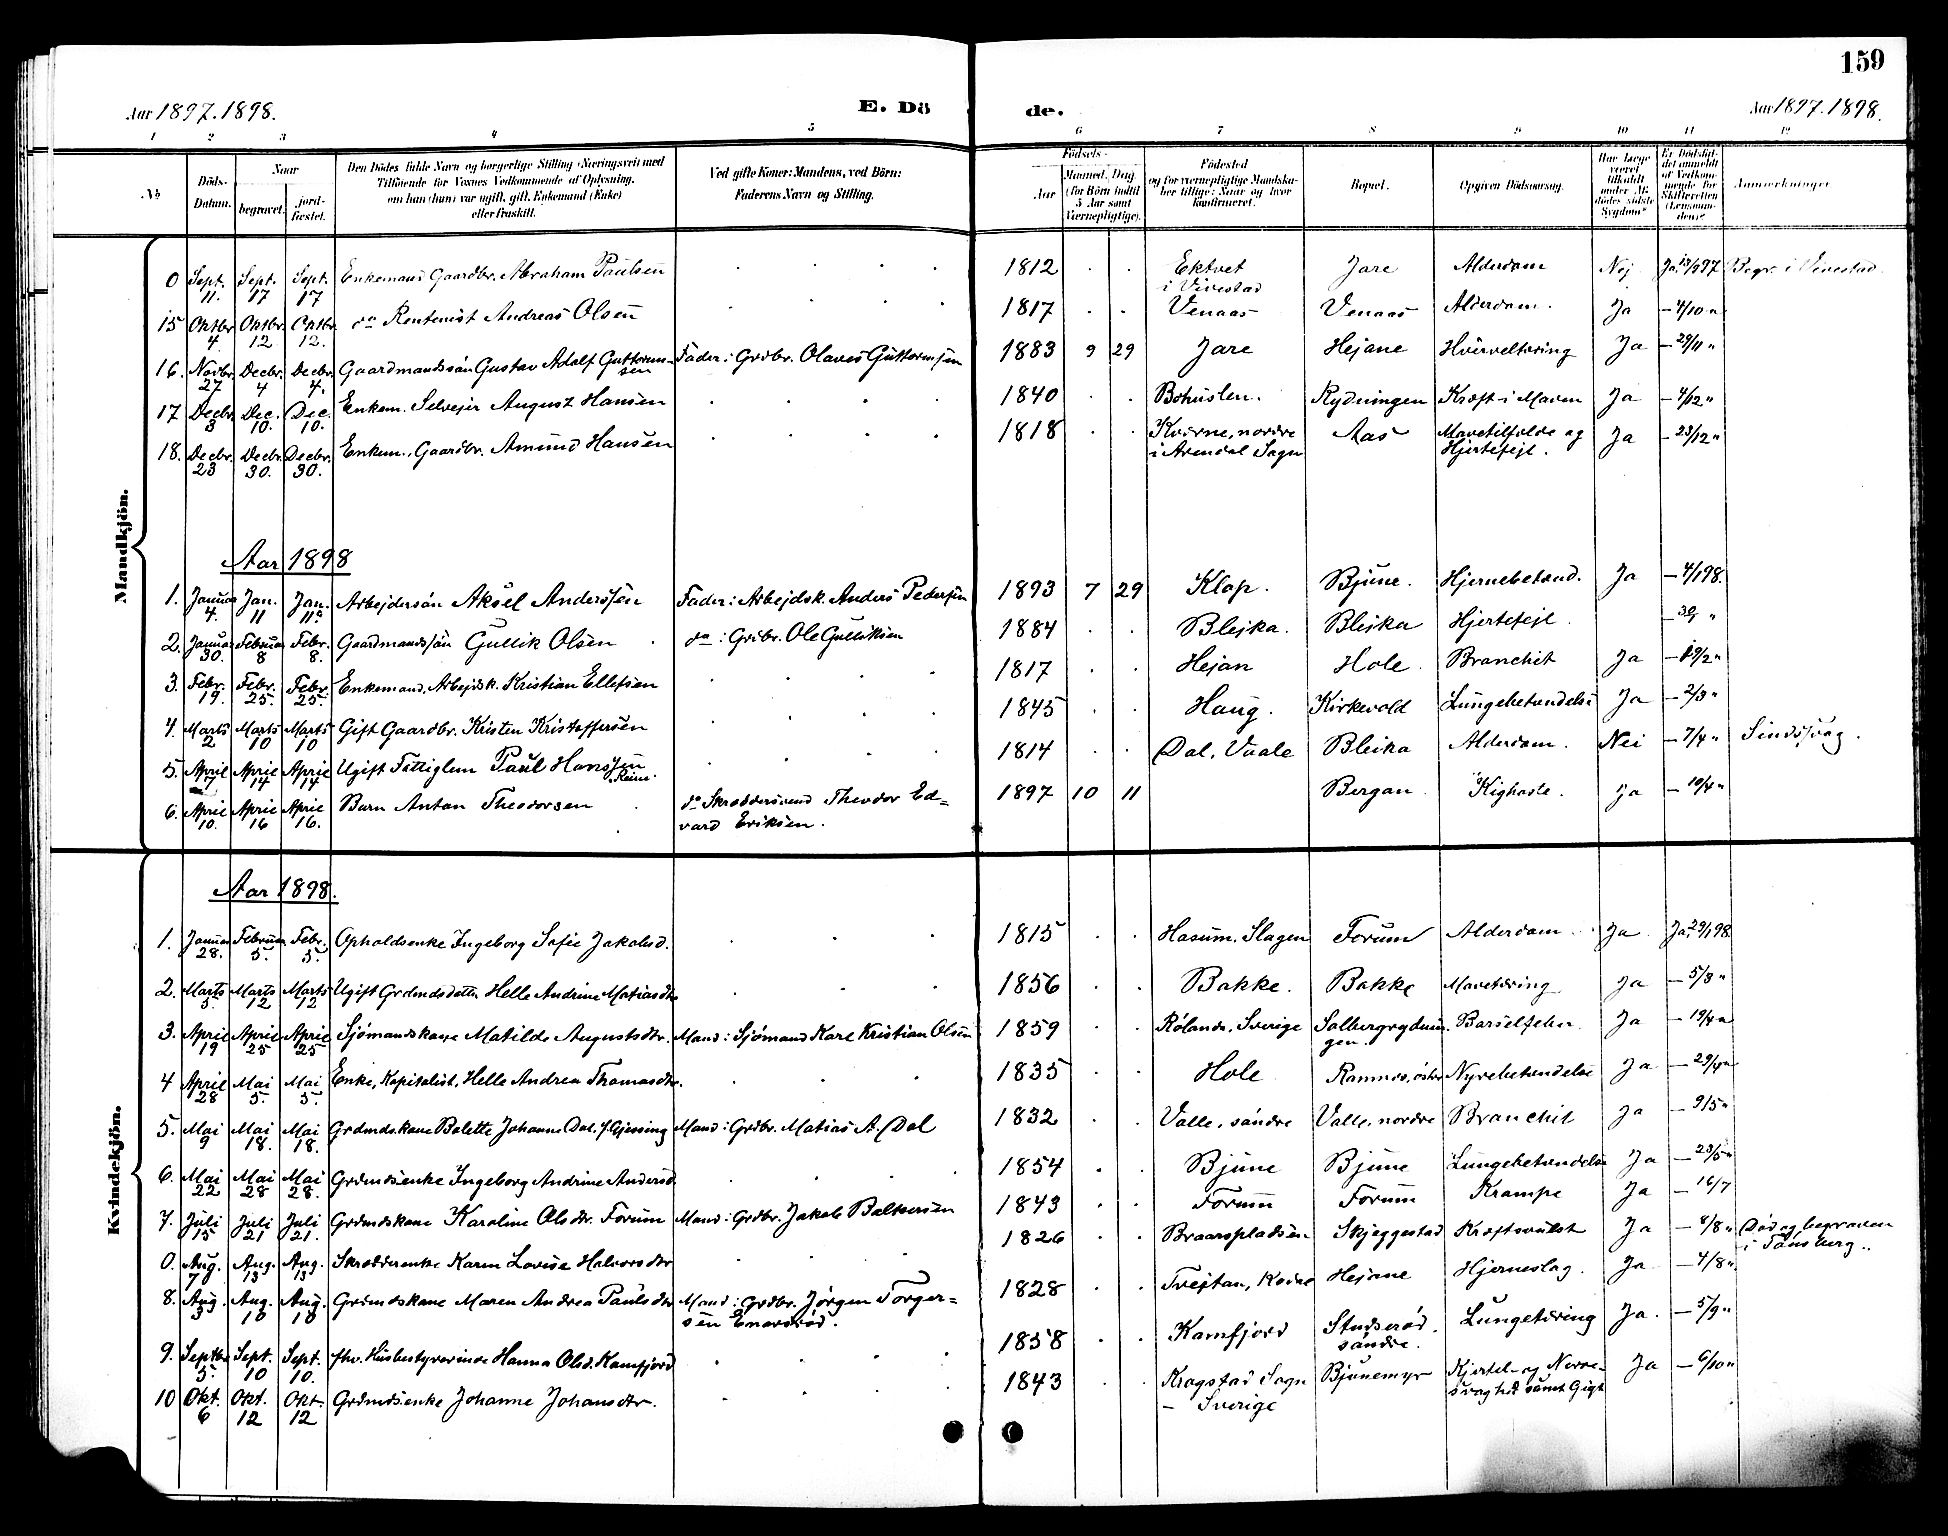 159
Aar 1897. 1898.
E. Dö
de.
Aar 1897. 1898.
1 2 3 4 5 6 7 8 9 10 11 12
No
Döds-Datum.
Naar
begravet.
jord-fæstet.
Den Dödes fulde Navn og borgerlige Stilling (Næringsvei) med
Tilföiende for Voxnes Vedkommende af Oplysning,
om han (hun) var ugift, gift, Enkemand (Enke)
eller fraskilt.
Ved gifte Koner: Mandens, ved Börn:
Faderens Navn og Stilling.
Födsels-
Aar
Maaned. Dag.
(for Börn indtil
5 Aar samt
Værnepligtige).
Födested
og for værnepligtige Mandska-
ber tillige: Naar og hvor
konfirmeret.
Bopæl.
Opgiven Dödsaarsag.
Har Læge
været
tilkaldt
under Af-
dödes sidste
Sygdom?
Er Dödsfal-
det anmeldt
af Vedkom-
mende for
Skifteretten
(Lensman-
den)?
Anmærkninger
Mandkjön.
0 Sept. 11. Sept. 17 Sept. 17 Enkemand Gaardbr. Abraham Paulsen 1812 Ektvet i Vivestad Jare Alderdom Nej Ja 13/9 97 Begr. i Vivestad
15 Oktbr. 4 Oktbr. 12 Oktbr. 12. do Rentenist Andreas Olsen 1817 Venaas Venaas Alderdom. Ja — 4/10 "
16. Novbr. 27 Decbr. 4 Decbr. 4. Gaardmandssön Gustav Adolf Guttormsen Fader: Grdbr. Olaves Guttormsen 1883 9 29 Jare Hejane Hvirveltæring Ja — 29/11 "
17 Decbr. 3 Dec. 10. Dec. 10. Enkem. Selvejer August Hansen 1840 Bohuslen. Rydningen Kræft i Maven Ja — 4/12 "
18. Decbr. 23 Decbr. 30. Decbr. 30. Enkem. Gaardbr. Amund Hansen 1818 Kverne, nordre i Arendal Sogn Aas Mavetilfælde og Hjertefejl. Ja — 23/12 "
Aar 1898
1. Januar 4. Jan. 11 Jan. 11. Arbejdersön Aksel Anderssen Fader: Arbejdsk. Anders Pedersen 1893 7 29 Klop. Bjune. Hjernebetænd. Ja — 4/1 98.
2. Januar 30. Februar 8 Febr. 8. Gaardmandssön Gullik Olsen do: Grdbr. Ole Gulliksen 1884 Blejka. Blejka Hjertefejl.
3. Febr. 19. Febr. 25. Febr. 25. Enkemand. Arbejdsk. Kristian Ellefsen 1817 Hejan Hole. Bronchit Ja — 19/2 "
4. Marts 2 Marts 10 Marts 10 Gift Gaardbr. Kristen Kristoffersen 1845 Haug. Kirkevold Lungebetændelse Ja — 2/3 "
5. April 7 April 14 April 14 Ugift Fattiglem Paul Hanssen Reim. 1814 Dal, Vaale Bleika Alderdom. Nei — 7/4 " Sindssvag.
6. April 10. April 16 April 16. Barn Anton Theodorsen do Skræddersvend Theodor Edvard Eriksen. 1897 10 11 Bergan. Kighoste. Ja — 10/4 "
Kvindekjön.
Aar 1898.
1. Januar 28. Februar 5. Febr. 5. Opholdsenke Ingeborg Sofie Jakobsd. 1815 Hasum, Slagen Forum Alderdom Ja Ja 29/1 98
2. Marts 5. Marts 12 Marts 12 Ugift Grdmdsdatter Helle Andrine Matiasdtr 1856 Bakke. Bakke Mavetæring Ja — 5/3 "
3. April 19 April 25 April 25 Sjömandskone Matilde Augustsdtr. Mand: Sjömand Karl Kristian Olsen 1859 Rølanda, Sverige Solbergrydningen. Barselfeber. Ja — 19/4 "
4 April 28 Mai 5. Mai 5. Enke, Kapitalist, Helle Andrea Thomasdtr. 1835 Hole Ramnes, östre Nyrebetændelse Ja — 29/4 "
5. Mai 9 Mai 18. Mai 18. Grdmdskone Bolette Johanne Dal, f. Gjessing Mand: Grdbr. Matias A. Dal 1832 Valle, söndre Valle, nordre Bronchit Ja — 9/5 "
6. Mai 22 Mai 28 Mai 28. Grdmdsenke Ingeborg Andrine Andersd. 1854 Bjune Bjune Lungebetændelse Ja — 23/5 "
7. Juli 15 Juli 21 Juli 21. Grdmdskone Karoline Olsdtr. Forum Mand: Grdbr. Jakob Baltersen 1843 Forum Forum Krampe Ja — 16/7
0. Aug. 7 Aug. 13 Aug. 13 Skrædderenke Karen Lovise Halvorsdtr 1826 Braarspladsen Skjeggestad Kræftsvulst Ja — 8/8 " Död og begraven i Tönsberg.
8. Aug 3 Aug. 10 Aug. 10 Grdmdskone Maren Andrea Paulsdtr Mand: Grdbr. Jörgen Torgersen Enarsröd. 1828 Trejtan, Kodne Hejane Hjerneslag. Ja — 4/8 "
9. Septbr 5. Sept. 10 Sept. 10. fhv. Husbestyrerinde Hanna Olsd. Kamfjord 1858 Kamfjord Studseröd. söndre. Lungetæring Ja. — 5/9 "
10 Okt. 6 Okt. 12 Okt. 12 Grdmdsenke Johanne Johansdtr. 1843 Krogstad Sogn — Sverige Bjunemyr Kjertel- og Nervesvaghed samt Gigt Ja — 6/10 "